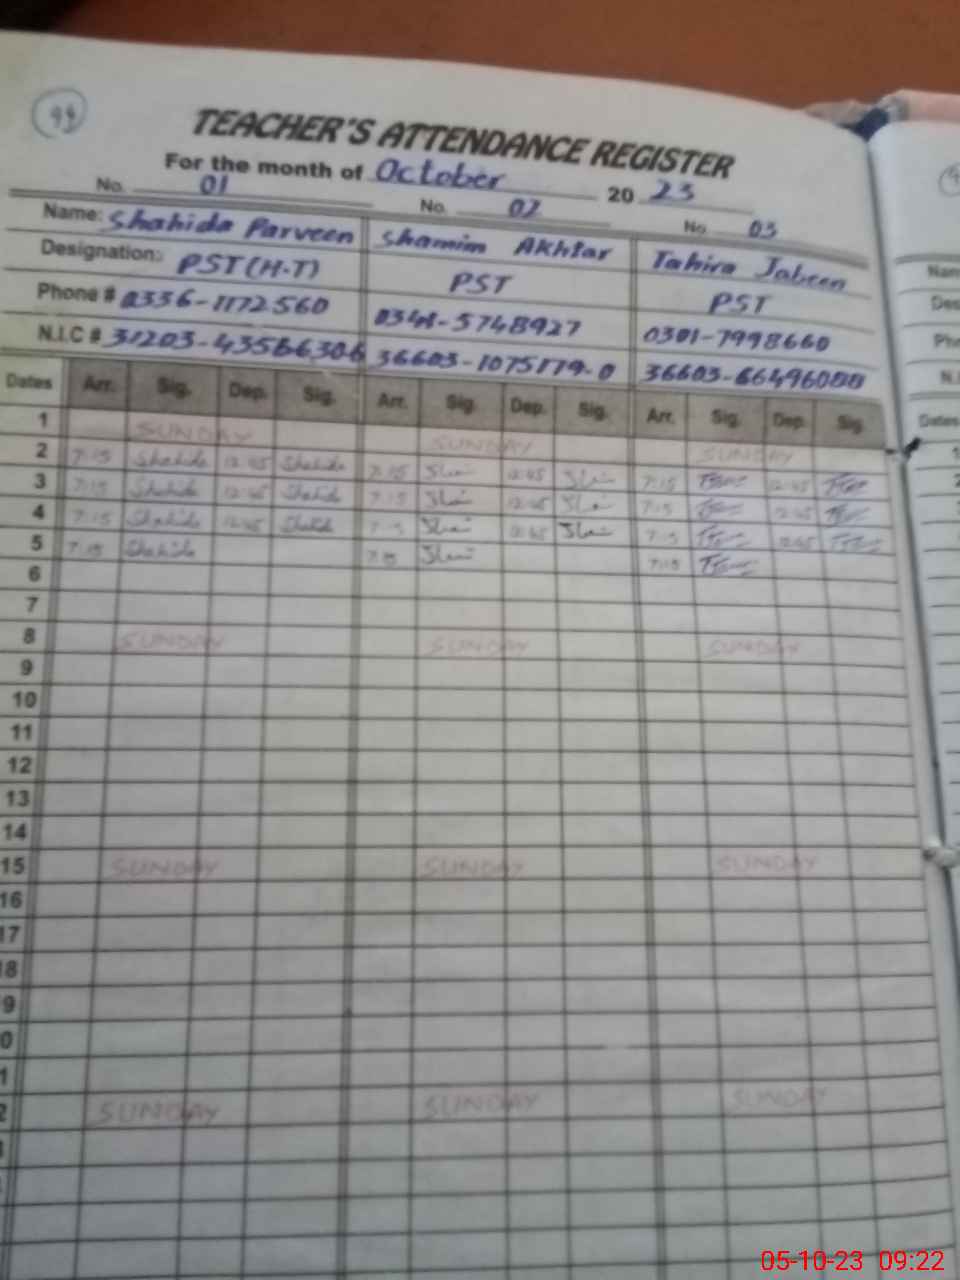 94
TEACHER'S ATTENDANCE REGISTER
For the month of October 2023
No. 01 No. 02 No. 03
Name: Shahida Parveen Shamim Akhtar Tahira Jabeen
Designation: PST (H-T) PST PST
Phone # 0336-1172560 0341-5748927 0301-7998660
N.I.C # 36603-1075179-0
Dates Arr. Sig. Dep. Sig. Arr. Sig. Dep. Sig. Arr. Sig. Dep. Sig.
1 SUNDAY SUNDAY SUNDAY
2 7:15 Shahida 12:45 Shahida 7:15 12:45 7:15 12:45
3 7:15 Shahida 12:45 Shahida 7:15 12:45 7:15 12:45
4 7:15 Shahida 12:45 Shahida 7:15 12:45 7:15 12:45
5 7:15 Shahida 7:15 7:15
6
7
8 SUNDAY SUNDAY SUNDAY
9
10
11
12
13
14
15 SUNDAY SUNDAY SUNDAY
16
17
8
9
0
1
2 SUNDAY SUNDAY SUNDAY
Dates
05-10-23 09:22